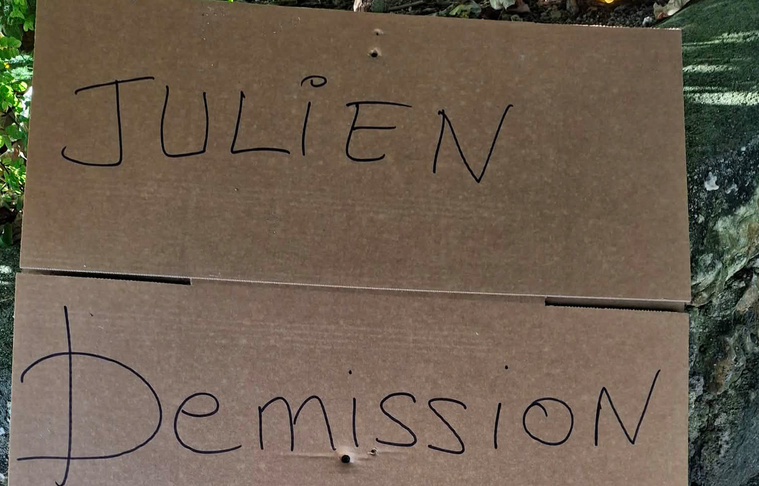 JULiEN
DemissioN